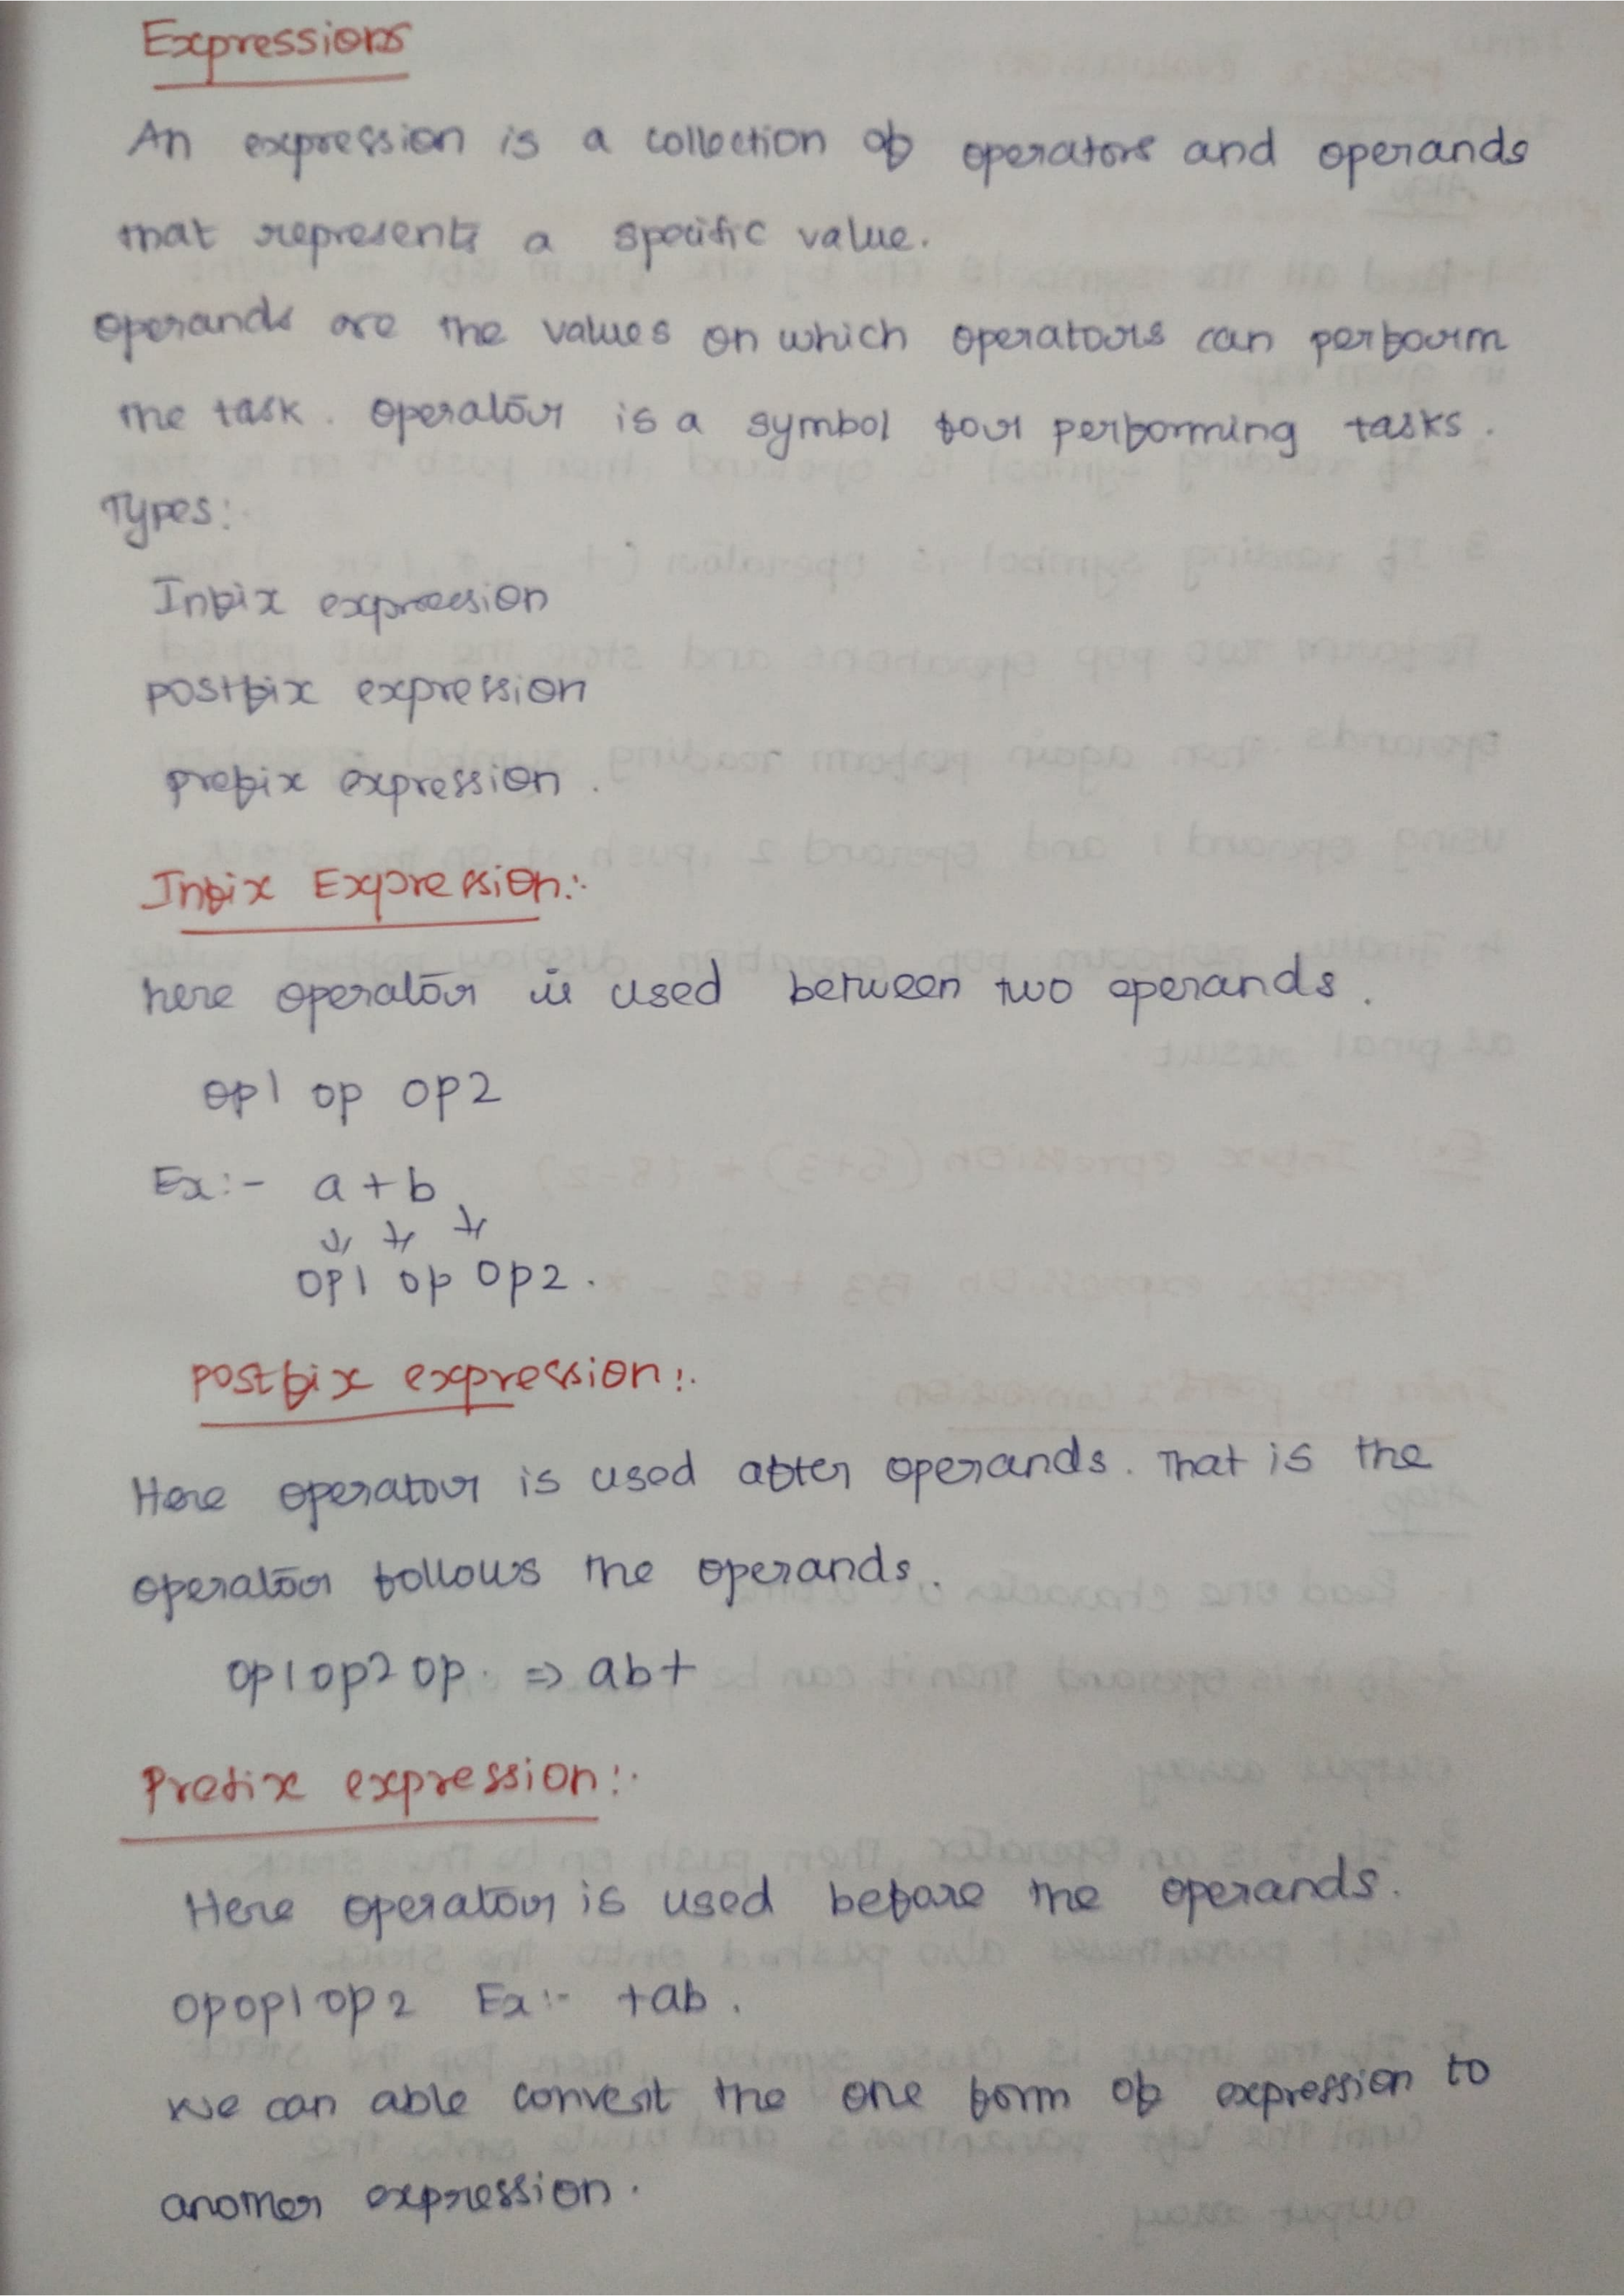 Expressions
An expression is a collection of operators and operands
that represents a specific value.
operands are the values on which operators can perform
the task. operator is a symbol for performing tasks.
Types:
Infix expression
postfix expression
prefix expression.
Infix Expression:
here operator is used between two operands.
op1 op op2
Ex:- a+b
op1 op op2.
postfix expression:
Here operator is used after operands. That is the
operator follows the operands.
op1op2 op. => ab+
Prefix expression:
Here operator is used before the operands.
opop1op2 Ex:- +ab.
we can able convert the one form of expression to
another expression.